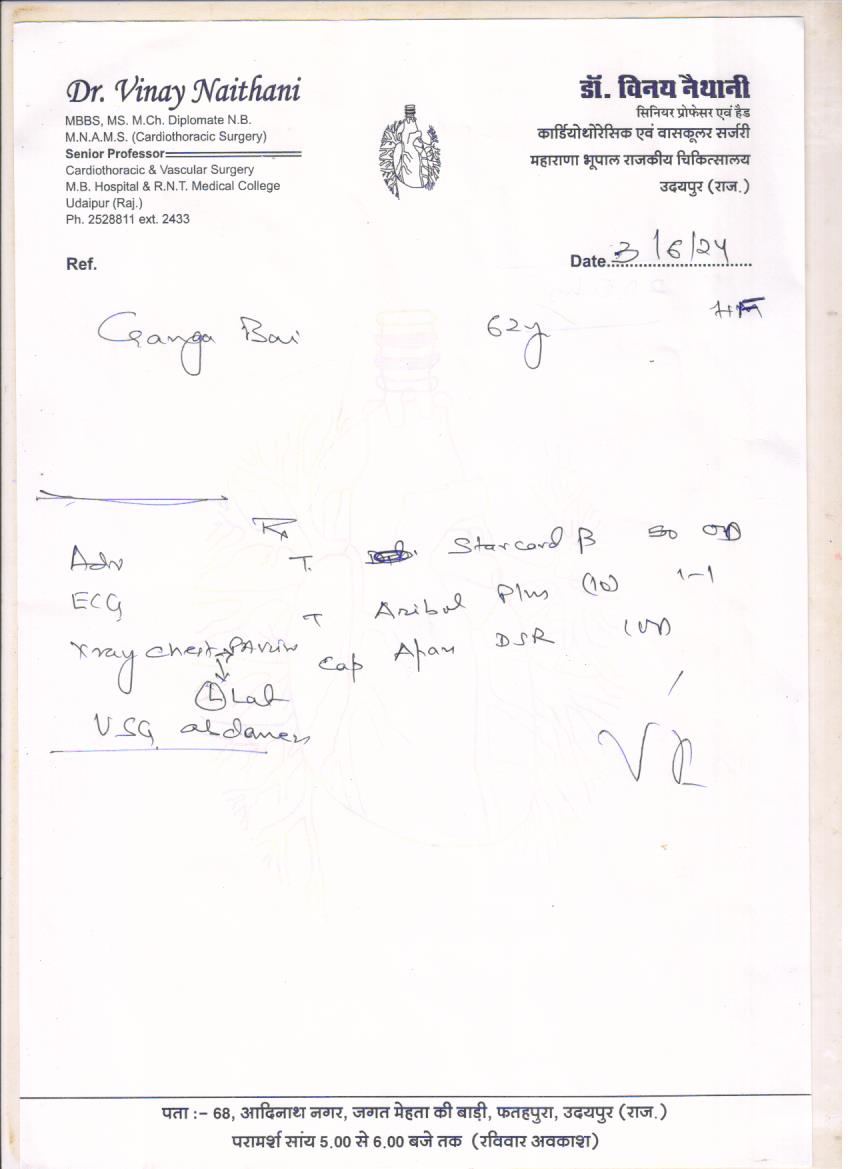 Dr. Vinay Naithani
MBBS, MS. M.Ch. Diplomate N.B.
M.N.A.M.S. (Cardiothoracic Surgery)
Senior Professor
Cardiothoracic & Vascular Surgery
M.B. Hospital & R.N.T. Medical College
Udaipur (Raj.)
Ph. 2528811 ext. 2433
डॉ. विनय नैथानी
सिनियर प्रोफेसर एवं हैड
कार्डियोथोरेसिक एवं वासकूलर सर्जरी
महाराणा भूपाल राजकीय चिकित्सालय
उदयपुर (राज.)
Ref.
Date 3/6/24
Ganga Bai 62y
Rx
Adv
ECG
Xray Chest PA view
Lat
USG abdomen
T. Starcard β 50 OD
T Plus (10) 1-1
Cap DSR
पता :- 68, आदिनाथ नगर, जगत मेहता की बाड़ी, फतहपुरा, उदयपुर (राज.)
परामर्श सांय 5.00 से 6.00 बजे तक (रविवार अवकाश)